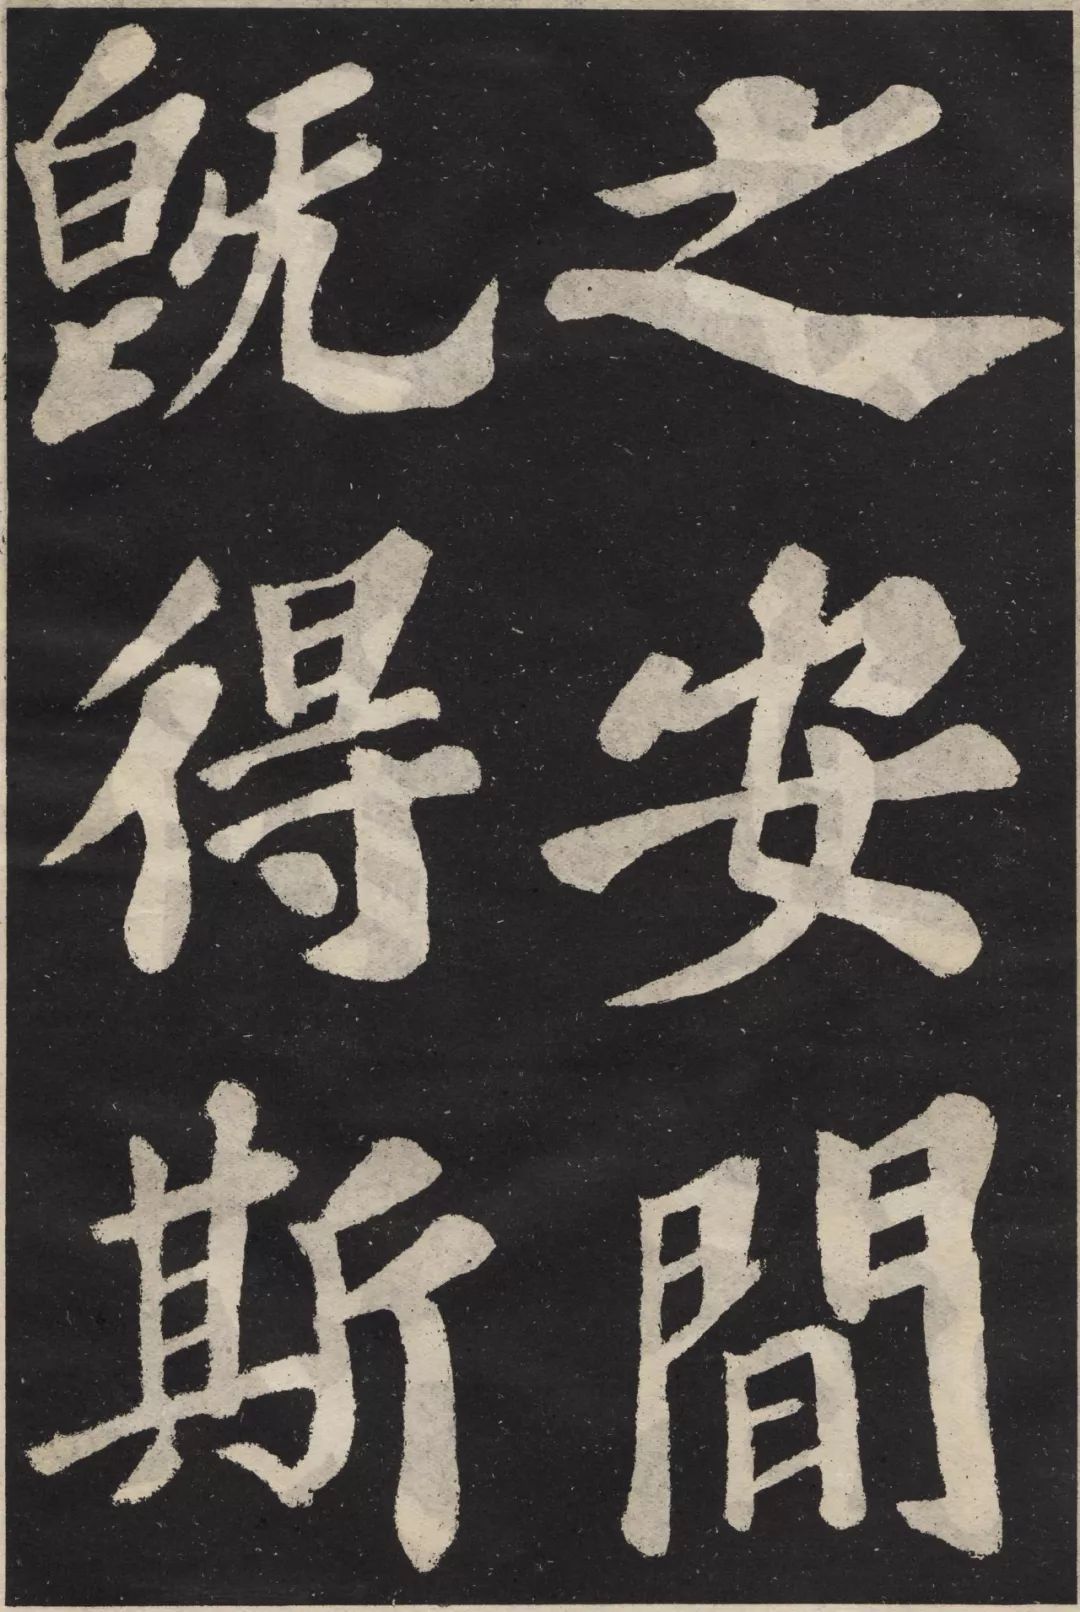 之安閒
既得斯